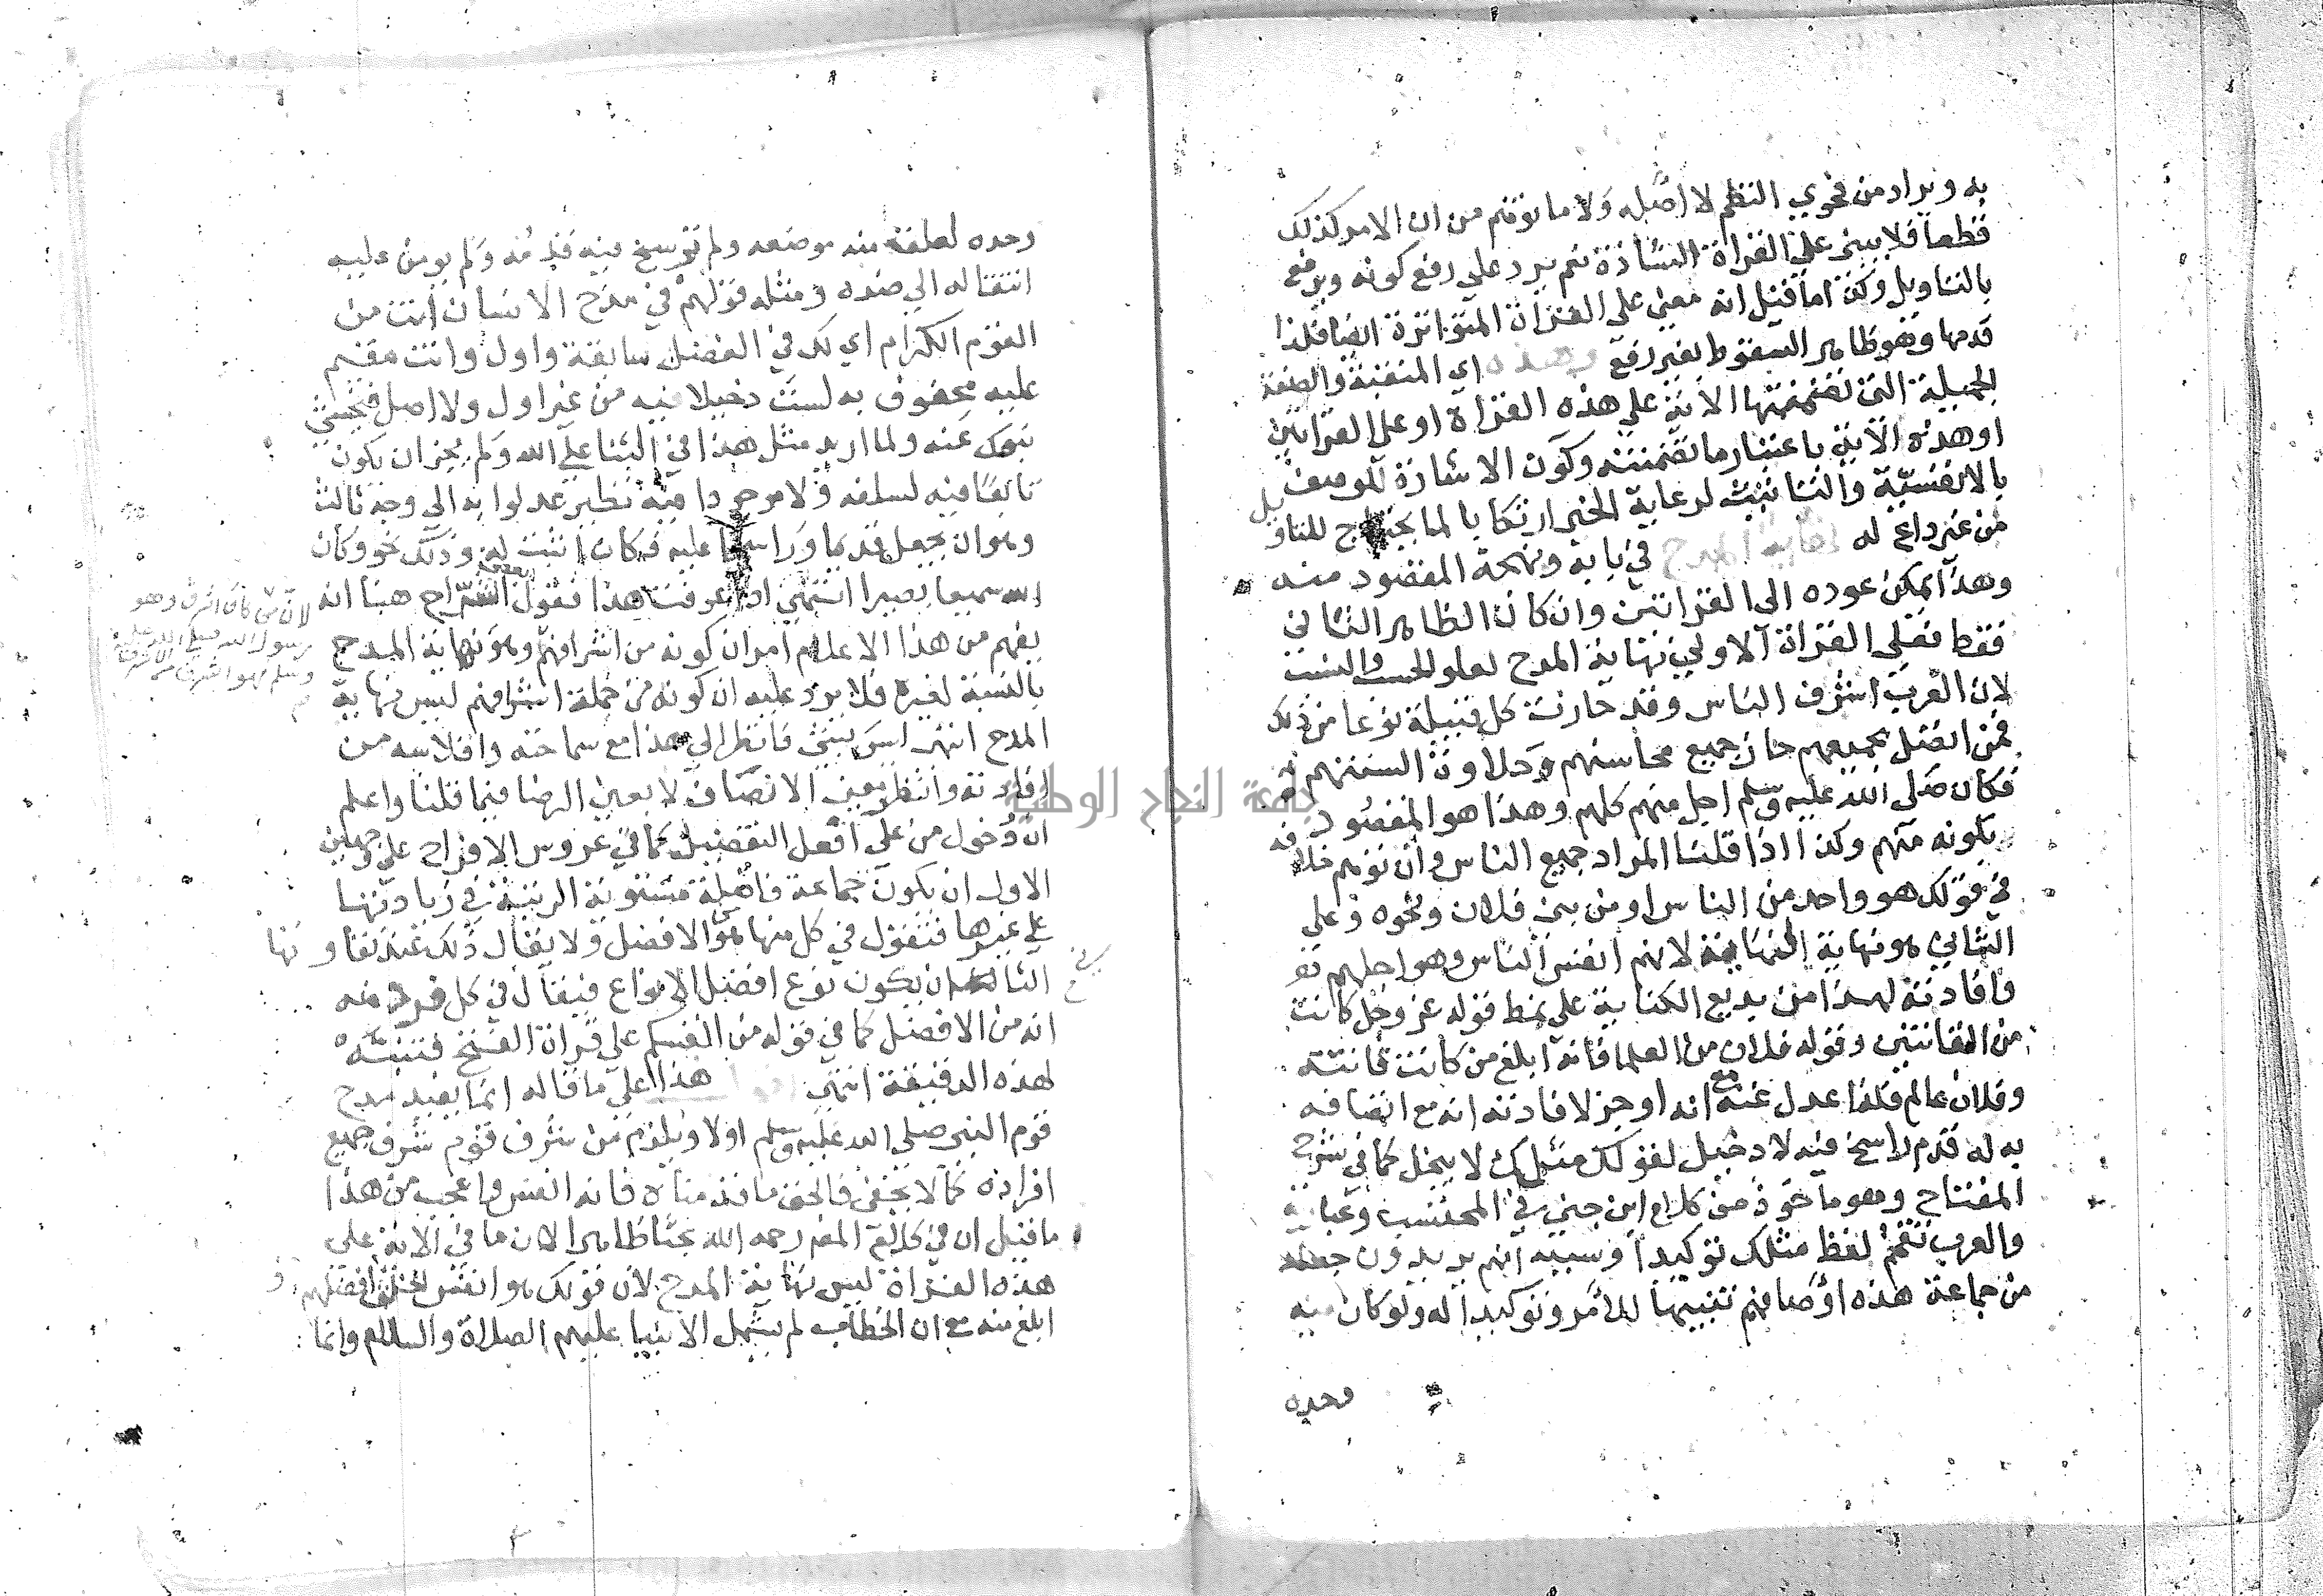 به ويراد من فحوي النظم لا اصل له ولا ما توهم من ان الامر كذلك
قطعا فلا يبني على القراة الشاذة ثم يرد على رفع كونه ويرفع
بالتاويل وكذا ما قيل انه مبني على القراة المتواترة ايضا فلذا
قدمها وهو ظاهر السقوط بغير رفع وهذه اي المنقبة والصفة
الجميلة التي تضمنتها الاية على هذه القراة او على القراتين
او هذه الاية باعتبار ما تضمنته وكون الاشارة للوصف
بالانفسية والتانيث لرعاية الخبر ارتكابا لما يحتاج للتاويل
من غير داع له نهاية المدح في بابه ونهجة المقصود منه
وهذا يمكن عوده الى القراتين وان كان الظاهر الثاني
فقط فعلى القراة الاولى نهاية المدح لعلو الحسب والنسب
لان العرب اشرف الناس وقد حازت كل قبيلة نوعا من ذلك
فمن اتصل بجميعهم حاز جميع محاسنهم وحلاوة السنتهم
فكان صلى الله عليه وسلم اجل منهم كلهم وهذا هو المقصود
بكونه منهم وكذا اذا قلنا المراد جميع الناس وان توهم خلافه
في قولك هو واحد من الناس او من بني فلان ونحوه وعلى
الثاني هو نهاية النهاية لانهم انفس الناس وهو اجلهم
وافادته لهذا من بديع الكناية على نمط قوله عز وجل كانت
من القانتين وقوله فلان من العلما فانه ابلغ من كانت قانتة
وفلان عالم فلذا عدل عنه مع انه اوجز لافادته انه مع اتصافه
به له قدم راسخ فيه لا دخيل لقولك مثلك لا يبخل كما في شرح
المفتاح وهو ماخوذ من كلام ابن جني في المحتسب وعبارته
والعرب تقحم لفظ مثلك توكيدا وسببه انهم يريدون جعله
من جماعة هذه اوصافهم تنبيها للامر وتوكيدا له ولو كان فيه
وحده
وحده لعلقة منه موضعه ولم ترسخ فيه قدمه ولم يومن عليه
انتقاله الي ضده ومثله قولهم في مدح الانسان انت من
القوم الكرام اي لك في الفضل سابقة واول وانت مقيم
عليه محقوق به لست دخيلا فيه من غير اول ولا اصل فيخشى
نبوك عنه ولما اريد مثل هذا في الثنا على الله ولم يجز ان يكون
تابعا فيه لسلفه ولا مرجودا فيه نظير عدلوا به الي وجه ثالث
وهو ان يجعل قديما وراسخا عليه فكان اثبت له وذلك نحو وكان
الله سميعا بصيرا انتهى اذا عرفت هذا فقول بعض الشراح هنا انه
يفهم من هذا الاعلام امران كونه من اشرافهم وهو نهاية المدح
بالنسبة لغيره فلا يرد عليه ان كونه من جملة اشرافهم ليس نهاية
المدح انتهى ليس بشي فانظر الي هذا مع سماجته وافلاسه من
افادته وانظر بعين الانصاف لا بعين الرضا فيما قلنا واعلم
ان دخول من على افعل التفضيل كما في عروس الافراح على وجهين
الاول ان يكون جماعة فاضلة مستوية الرتبة في زيادتها
على غيرها فتقول في كل منها هو الافضل ولا يقال ذلك عند تفاوتها
الثاني ان يكون نوع افضل الانواع فيقال في كل فرد منه
انه من الافضل كما في قوله من انفسكم على قراة الفتح فتنبه
لهذه الدقيقة انتهى هذا على ما قاله انما يفيد مدح
قوم النبي صلى الله عليه وسلم اولا ويلزم من شرف قوم شرف جميع
افراده كما لا يخفى فالحق ما قدمناه فانه انفس واعجب من هذا
ما قيل ان في كلام المص رحمه الله بحثا ظاهرا لان ما في الاية على
هذه القراة ليس نهاية المدح لان قولك هو انفس الخلق وافضلهم
ابلغ منه مع ان الخطاب لم يشمل الانبيا عليهم الصلاة والسلام وانما
لان من كان اشرف وهو
رسول الله صلى الله عليه
وسلم فهو اشرف من الاشراف
جامعة النجاح الوطنية